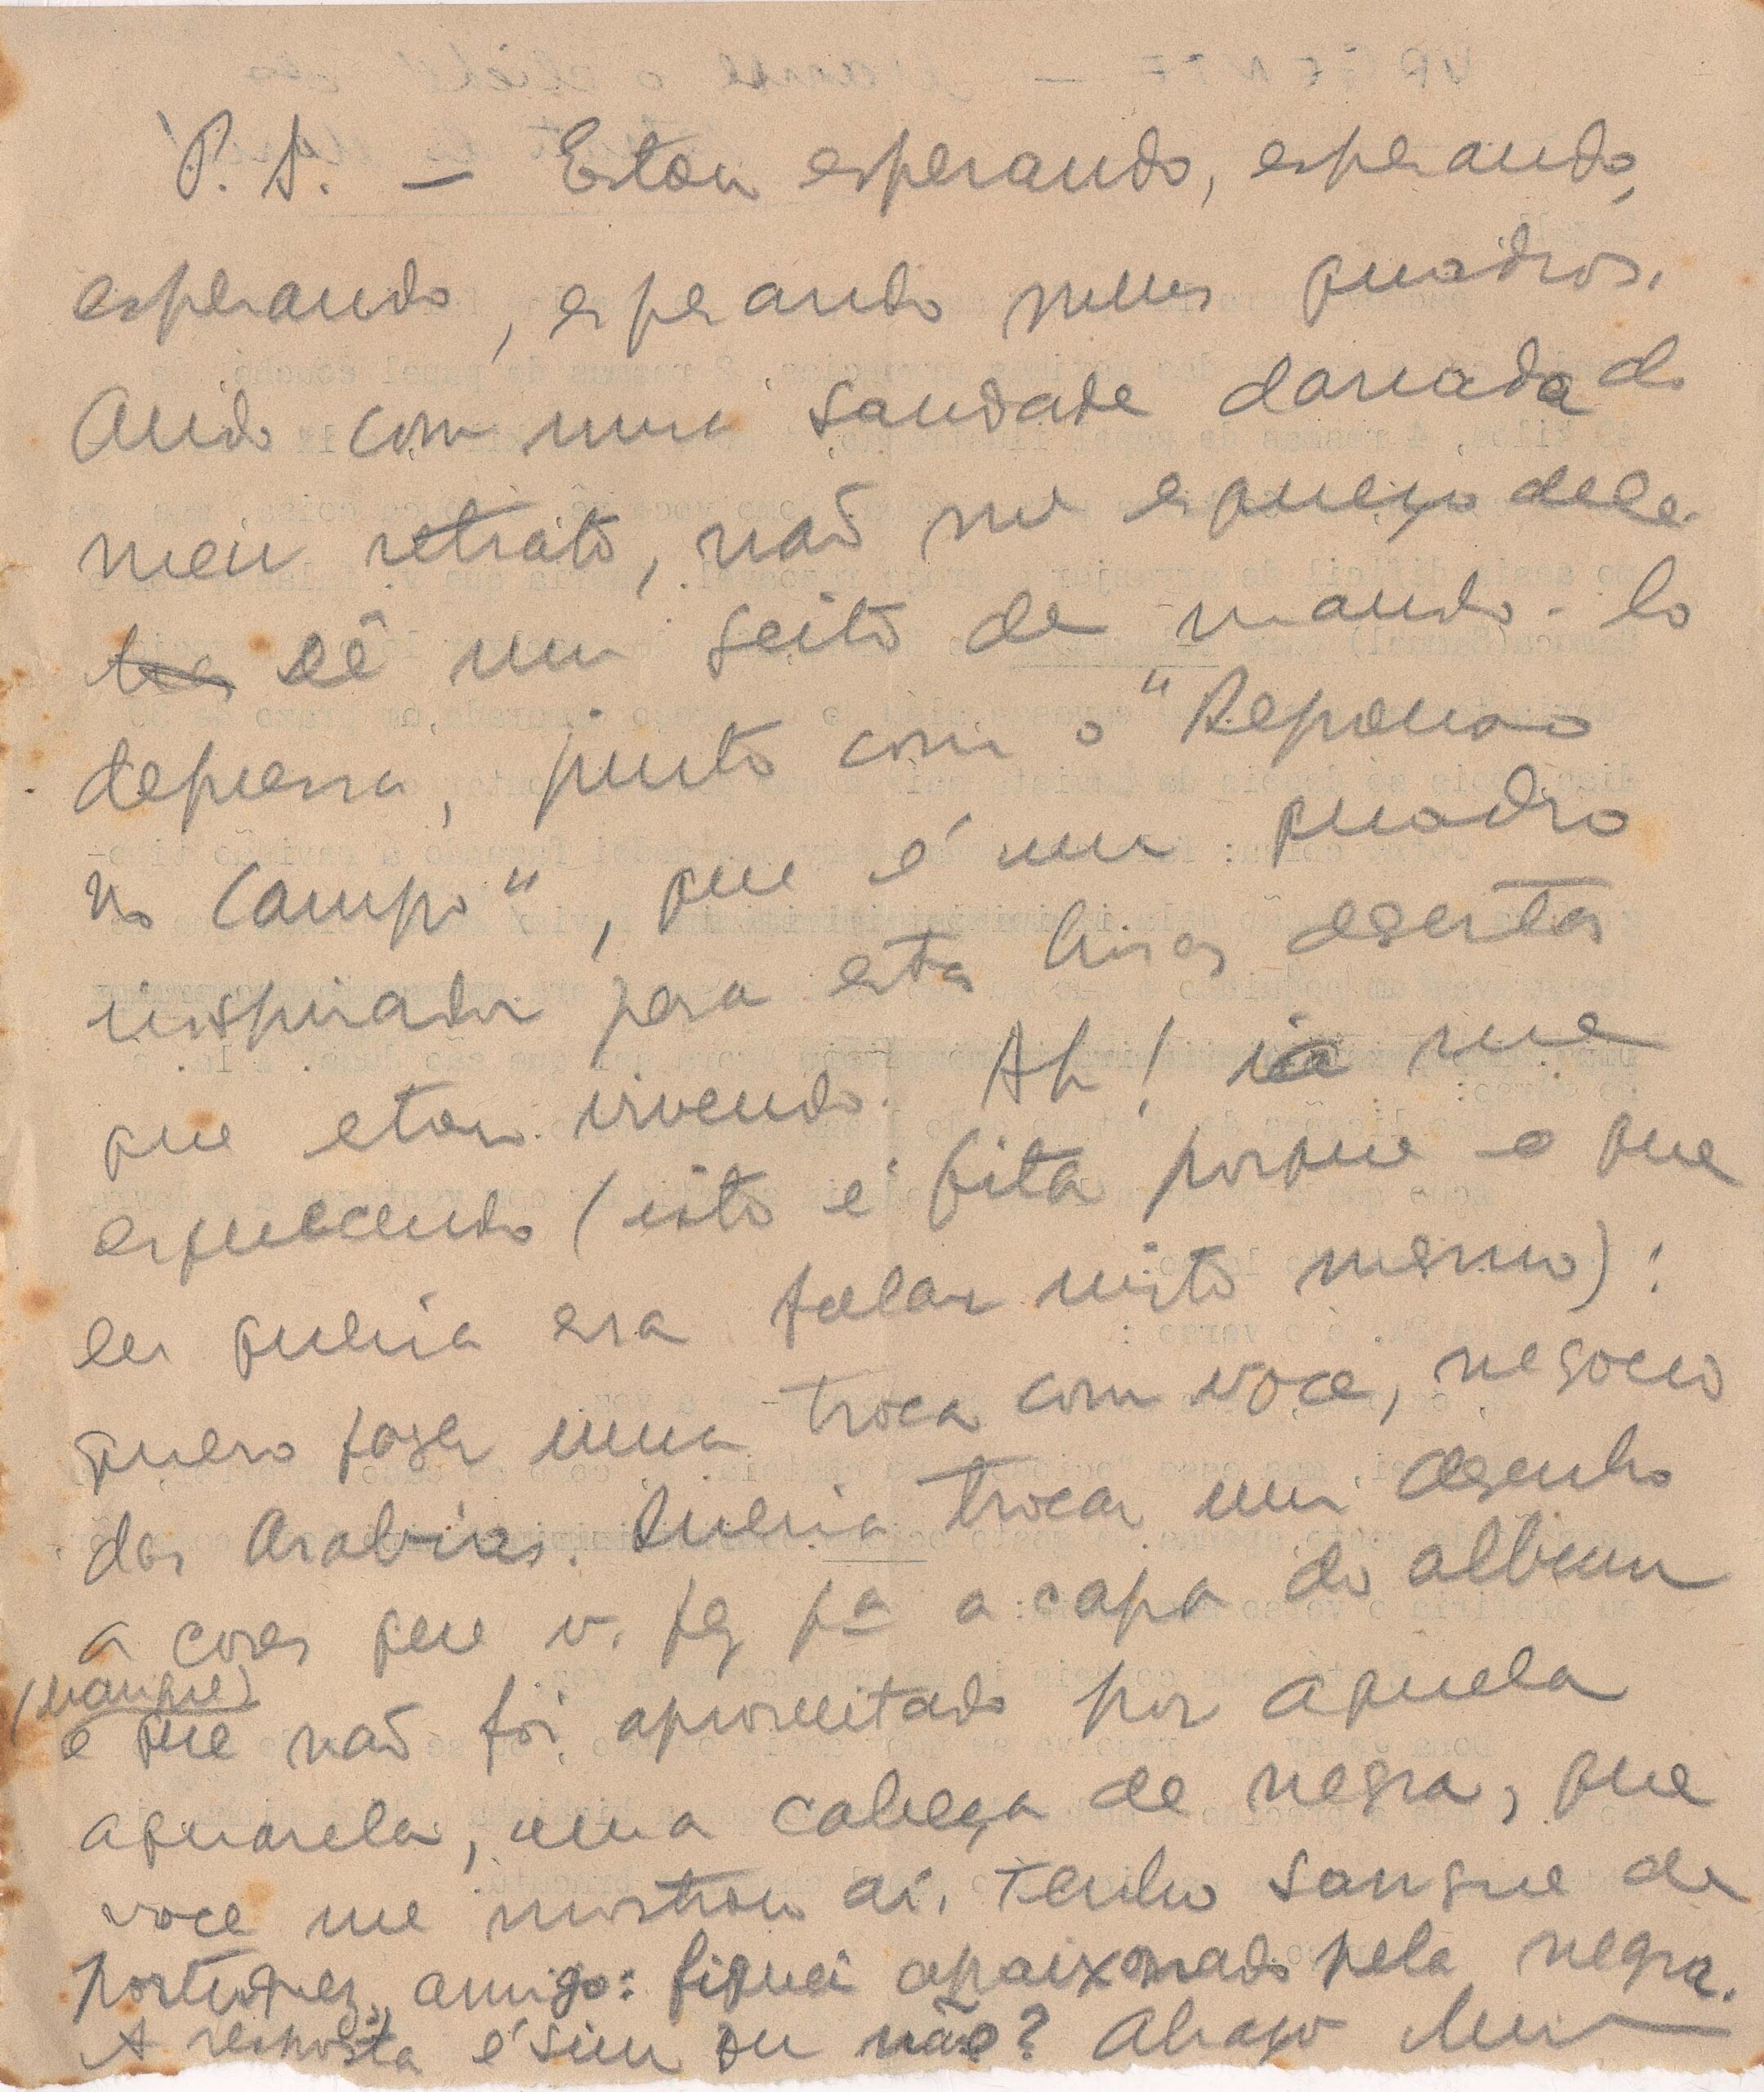 P.S. — Estou esperando, esperando,
esperando, esperando meus quadros.
Ando com uma saudade danada do
meu retrato, não me esqueço dele.
Dê um geito de mando-lo
depressa, junto com o "Repouso
no Campo", que é um quadro
inspirador para esta hora deserta
que estou vivendo. Ah! ia me
esquecendo (isto é fita porque o que
eu queria era falar nisto mesmo):
quero fazer uma troca com voce, negocio
das Arabias. Queria trocar um desenho
a cores que v. fez pª a capa do album
(mangue)
e que não foi aproveitado por aquela
aquarela, uma cabeça de negra, que
voce me mostrou aí. Tenho sangue de
portuguez, amigo: fiquei apaixonado pela negra.
A resposta é sim ou não? Abraço